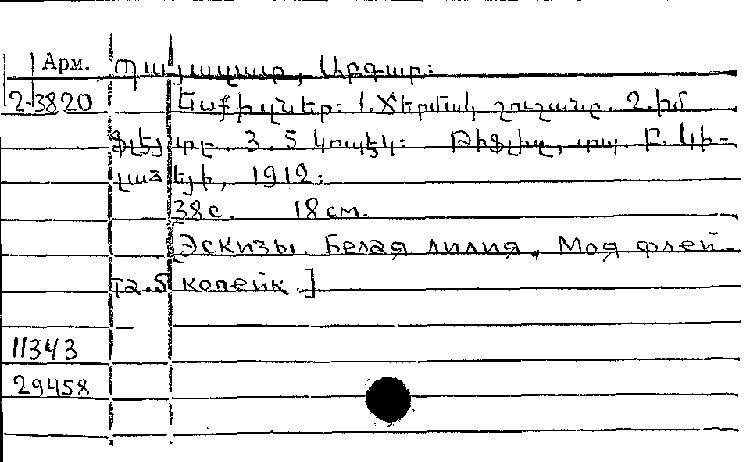 Арм. Պալասար, Արգար:
2-3820 Էսքիզներ: 1. Ճերմակ շուշանը. 2. իմ
ֆլէյտը. 3. 5 կոպէկ: Թիֆլիս, տպ. Բ. Կի-
լաձէյի, 1912:
38с. 18см.
Эскизы. Белая лилия. Моя флей-
та. 5 копейк.]
11343
29458